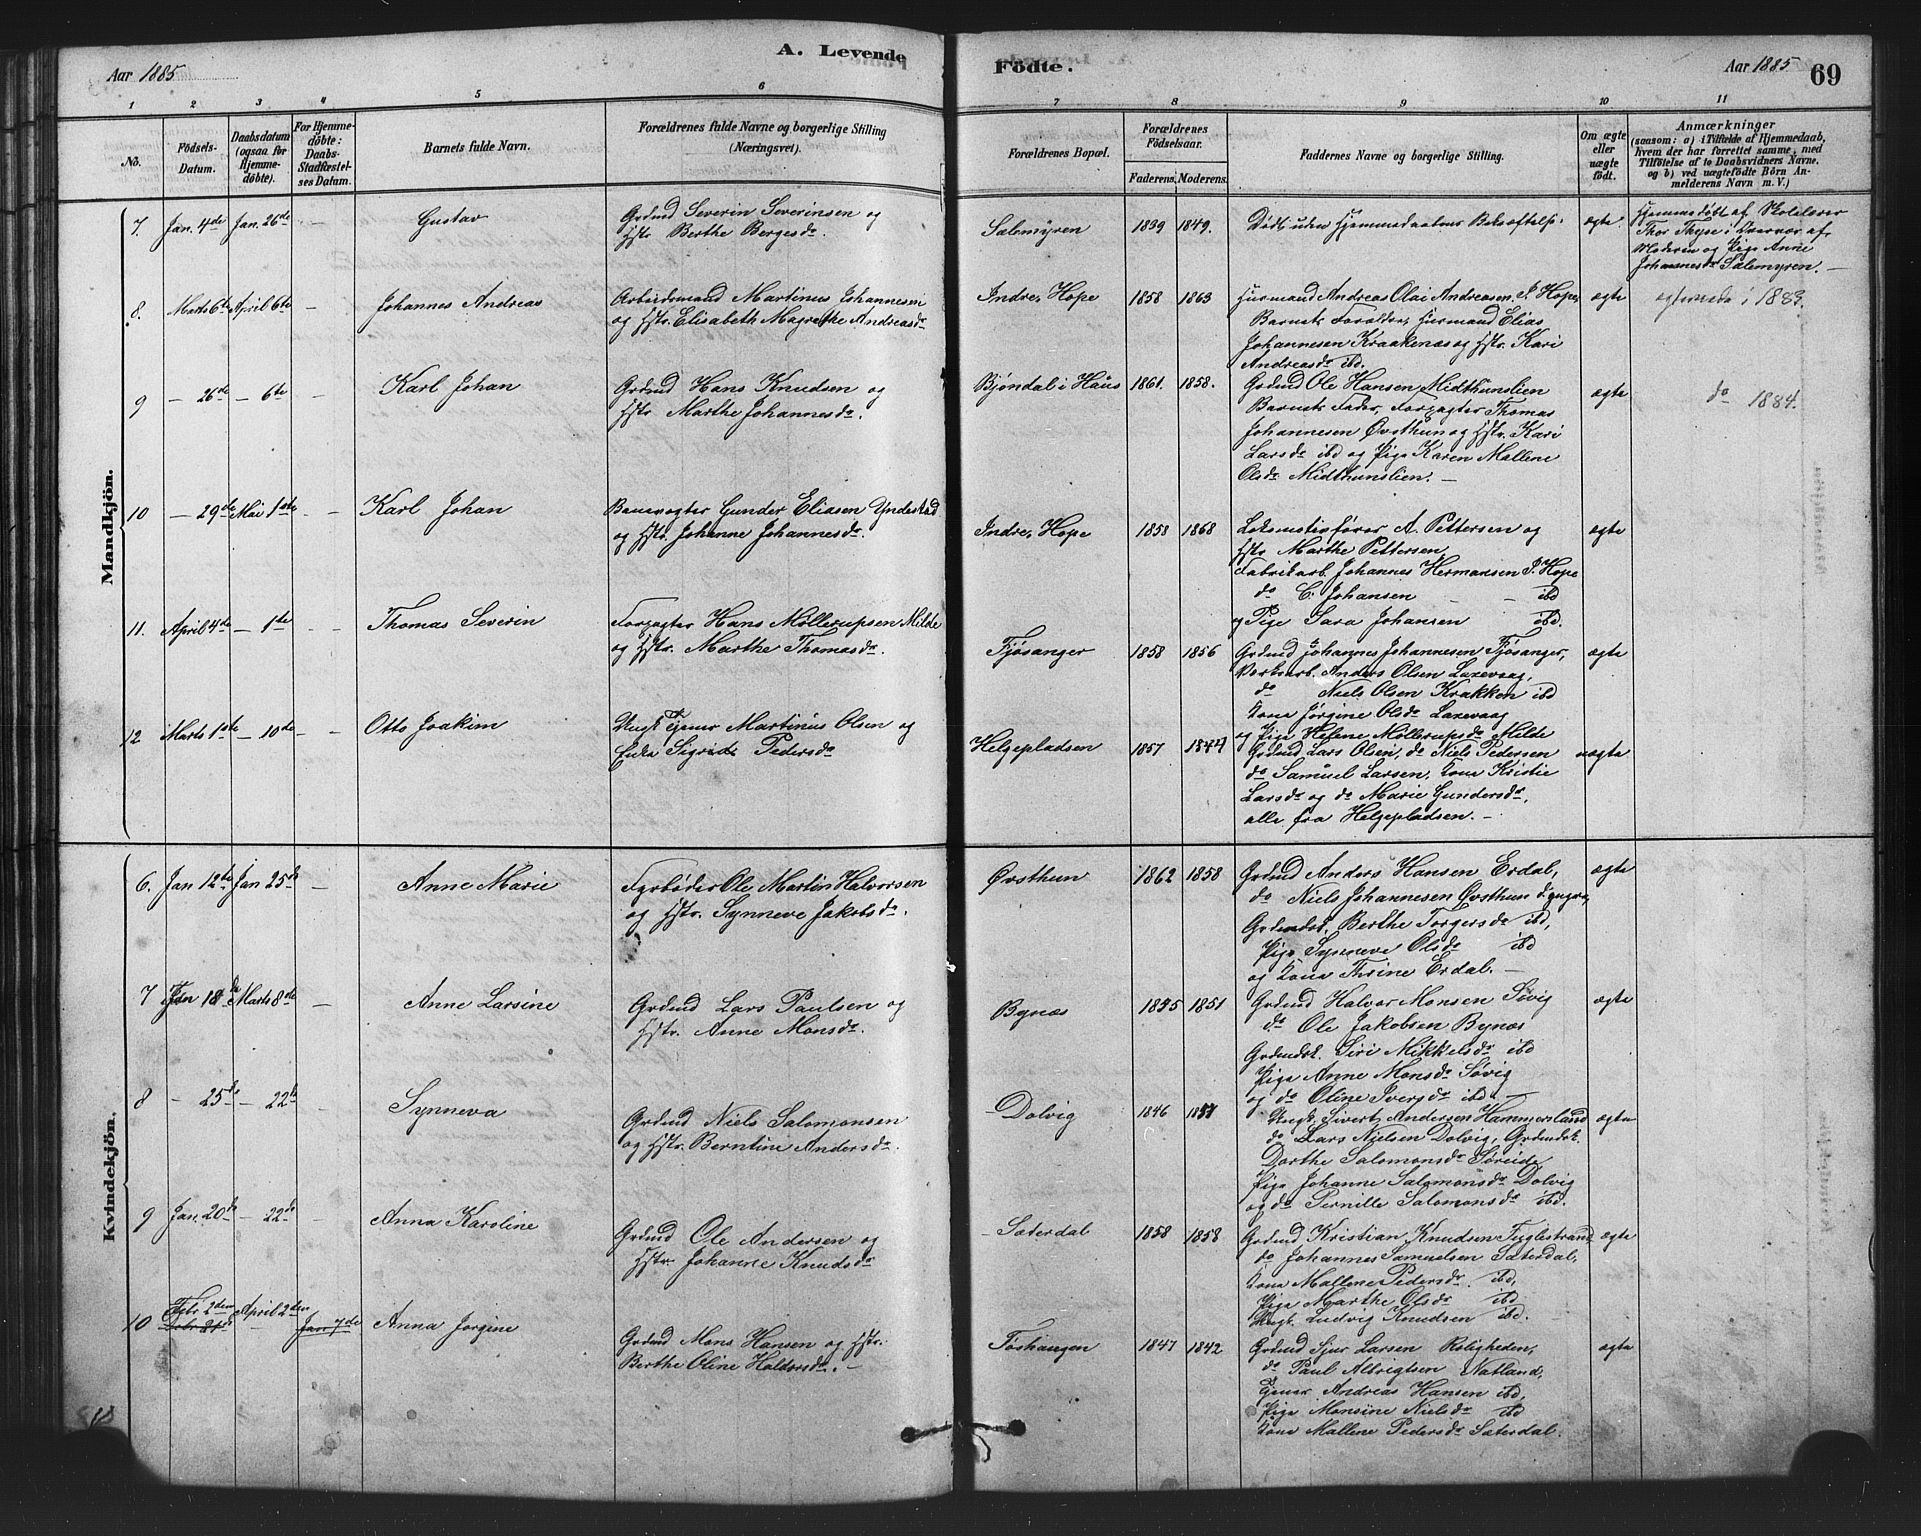 Aar 1885
A. Levende
Födte.
Aar 1885
69
1 2 3 4 5 6 7 8 9 10 11
No.
Födsels-
Datum.
Daabsdatum
(ogsaa for
Hjemme-
döbte).
For Hjemme-
döbte:
Daabs-
Stadfæstel-
ses Datum.
Barnets fulde Navn.
Forældrenes fulde Navne og borgerlige Stilling
(Næringsvei).
Forældrenes Bopæl.
Forældrenes
Födselsaar.
Faderens. Moderens.
Faddernes Navne og borgerlige Stilling.
Om ægte
eller
uægte
födt.
Anmærkninger
(saasom: a) i Tilfælde af Hjemmedaab,
hvem der har forrettet samme, med
Tilföielse af to Daabsvidners Navne.
og b) ved uægtefödte Börn An-
melderens Navn m. V.)
Mandkjön.
7. Jan. 4de Jan. 26de Gustav
Grdmd Severin Severinsen og
Hstr Berthe Bergesdr.
Sælemyren 1839 1849.
Döbt uden Hjemmedaabens Bekræftelse
ægte.
Hjemmedöbt af Skolelærer
Thor Thyse i af
Moderen og Pige Anne
Johannesdr Sælemyren. —
8. Marts 6te April 6te — Johannes Andreas
Arbeidsmand Martinus Johannesen
og Hstr. Elisabeth Magrethe Andreasdr
Indre Hope 1858 1863
Husmand Andreas Olai Andreasen I. Hope
Barnets Forældre, Husmand Elias
Johannesen Kraakenæs og Hstr. Kari
Andreasdr ibd.
ægte
i 1883.
9 — 26de — 6te — Karl Johan
Grdmd Hans Knudsen og
Hstr Marthe Johannesdr.
Bjöndal i Haus 1861. 1858.
Grdmd Ole Hansen Midthunslien
Barnets Fader, Forpagter Thomas
Johannesen Övsthun og Hstr. Kari
Larsdr ibd og Pige Karen Mallene
Olsdr Midthunslien. —
ægte
do 1884.
10 — 29de Mai 1ste — Karl Johan
Banevogter Gunder Eliasen Yndestad
og Hstr. Johanne Johannesdr.
Indre Hope 1858 1868
Lokomotivförer A. Pettersen og
Hstr Marthe Pettersen,
Fabrikarb. Johannes Hermansen I. Hope
do C. Johansen — — ibd
og Pige Sara Johansen ibd.
ægte
11. April 4de — 1ste — Thomas Severin
Forpagter Hans Möllerupsen Milde
og Hstr. Marthe Thomasdr.
Fjösanger 1858 1856
Grdmd Johannes Johannesen Fjösanger,
Værksarb. Anders Olsen Laxevaag,
do Niels Olsen Krakken ibd
Kone Jörgine Olsdr Laxevaag
og Pige Helene Möllerupsdr Milde
ægte
12 Marts 1ste — 10de — Otto Joakim
Ungk. Tjener Martinus Olsen og
Enke Sigride Pedersdr
Helgepladsen 1857 1844
Grdmd Lars Olsen, do Niels Pedersen
do Samuel Larsen, Kone Kristie
Larsdr og do Marie Gundersdr,
alle fra Helgepladsen. —
uægte
Kvindekjön.
6. Jan 12te Jan 25de — Anne Marie
Fyrböder Ole Martin Halvorsen
og Hstr. Synneve Jakobsdr.
Övsthun 1862 1858
Grdmd Anders Hansen Erdal,
do Niels Johannesen Övsthun
Grdmdsk. Berthe Torgersdr ibd,
Pige Synneve Olsdr ibd
og Kone Thrine Erdal. —
ægte
7 Jan 18de Marts 8de — Anne Larsine
Grdmd Lars Paulsen og
Hstr. Anne Monsdr.
Bynæs 1855 1851
Grdmd Halvor Monsen Sövig
do Ole Jakobsen Bynæs
Grdmdsk. Siri Mikkelsdr ibd
Pige Anne Monsdr Sövig
og do Oline Iversdr ibd. —
ægte
8 — 25de — 22de — Synneva
Grdmd Niels Salomonsen
og Hstr. Berntine Andersdr.
Dolvig 1846 1857
Ungk. Sivert Andersen Hammersland
do Lars Nielsen Dolvig, Grdmdsk.
Dorthe Salomonsdr Söreide,
Pige Johanne Salomonsdr Dolvig
og do Pernille Salomonsdr ibd.
ægte
9 Jan. 20de — 22de — Anna Karoline
Grdmd Ole Andersen og
Hstr Johanne Knudsdr
Sæterdal 1858 1858
Grdmd Kristian Knudsen Tuglestrand
do Johannes Samuelsen Sæterdal,
Kone Mallene Pedersdr ibd,
Pige Marthe Olsdr ibd
Ungk. Ludvig Knudsen ibd.
ægte
10 Febr 2den April 2den Jan 7de Anna Jorgine
Grdmd Mons Hansen og Hstr.
Berthe Oline Haldorsdr. —
Töshaugen 1847 1842
Grdmd Sjur Larsen Roligheden,
do Paul Albrigtsen Natland,
Tjener Andreas Hansen ibd,
Pige Monsine Nielsdr ibd
Kone Mallene Pedersdr Sæterdal.
ægte